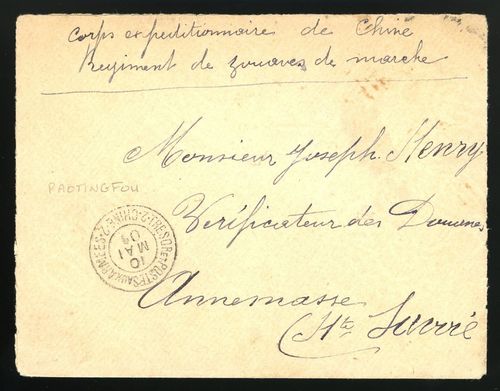 Corps expeditionnaire de Chine
Regiment de zouaves de marche
Monsieur Joseph Henry
PAOTINGFOU
Verificateur des Douanes
TRESOR ET POSTES AUX ARMEES · CHINE
10
MAI
01
Annemasse
(Hte Savoie